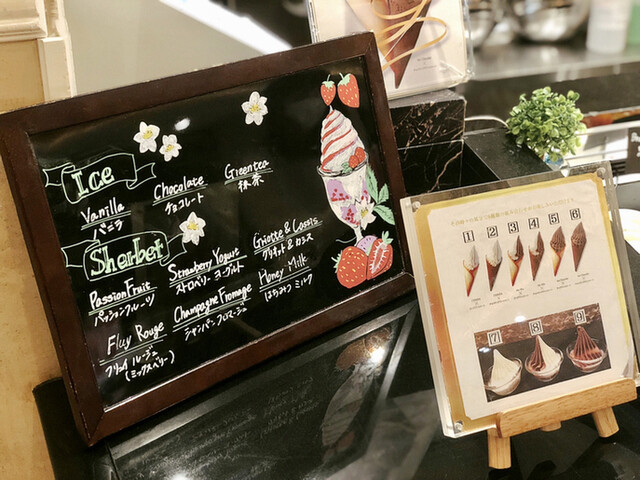 Ice
Vanilla
バニラ
Chocolate
チョコレート
Greentea
抹茶
Sherbet
Passion Fruit
パッションフルーツ
Strawberry Yogurt
ストロベリーヨーグルト
Griotte & Cassis
グリオット&カシス
Fluy Rouge
フリュイ ルージュ
(ミックスベリー)
Champagne Fromage
シャンパンフロマージュ
Honey Milk
はちみつミルク
1 2 3 4 5 6
7 8 9